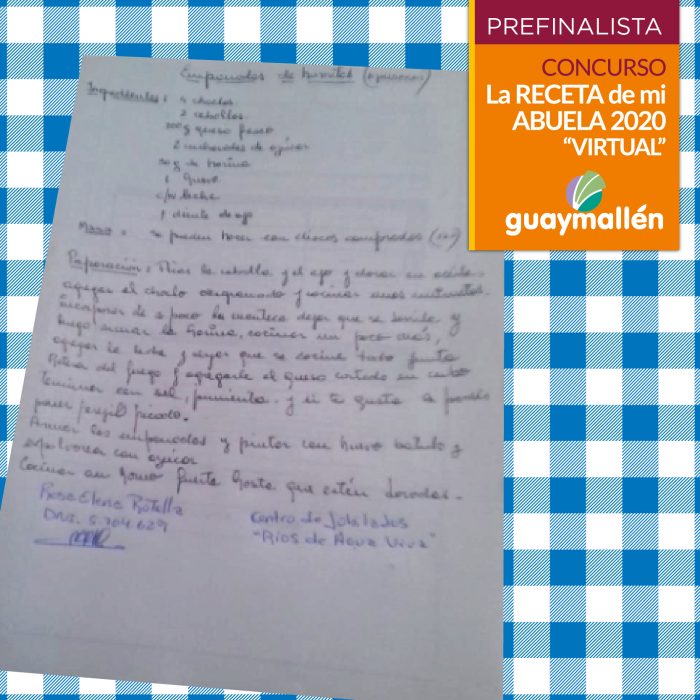 PREFINALISTA
CONCURSO
La RECETA de mi
ABUELA 2020
“VIRTUAL”
guaymallén
Empanadas de
Ingredientes: 4 choclos
2 cebollas
300g queso fresco
2 cucharadas de azúcar
50g de harina
1 huevo
leche
1 diente de ajo
Masa: se pueden hacer con discos comprados
Preparación: la cebolla y el ajo y dorar en aceite
agregar el choclo desgranado y cocinar unos minutitos.
Incorporar de a poco la manteca dejar que se derrita y
luego la harina, cocinar un poco más,
agregar la leche y dejar que se cocine todo junto
Retirar del fuego y agregarle el queso cortado en cubo
Terminar con sal, pimienta y si te gusta
poner perejil picado.
Armar las empanadas y pintar con huevo batido y
espolvorear con azúcar
Cocinar en horno fuerte hasta que estén doradas.
Rosa Elena Botella
DNI. 5.704.629
Centro de Jubilados
"Rios de Agua Viva"